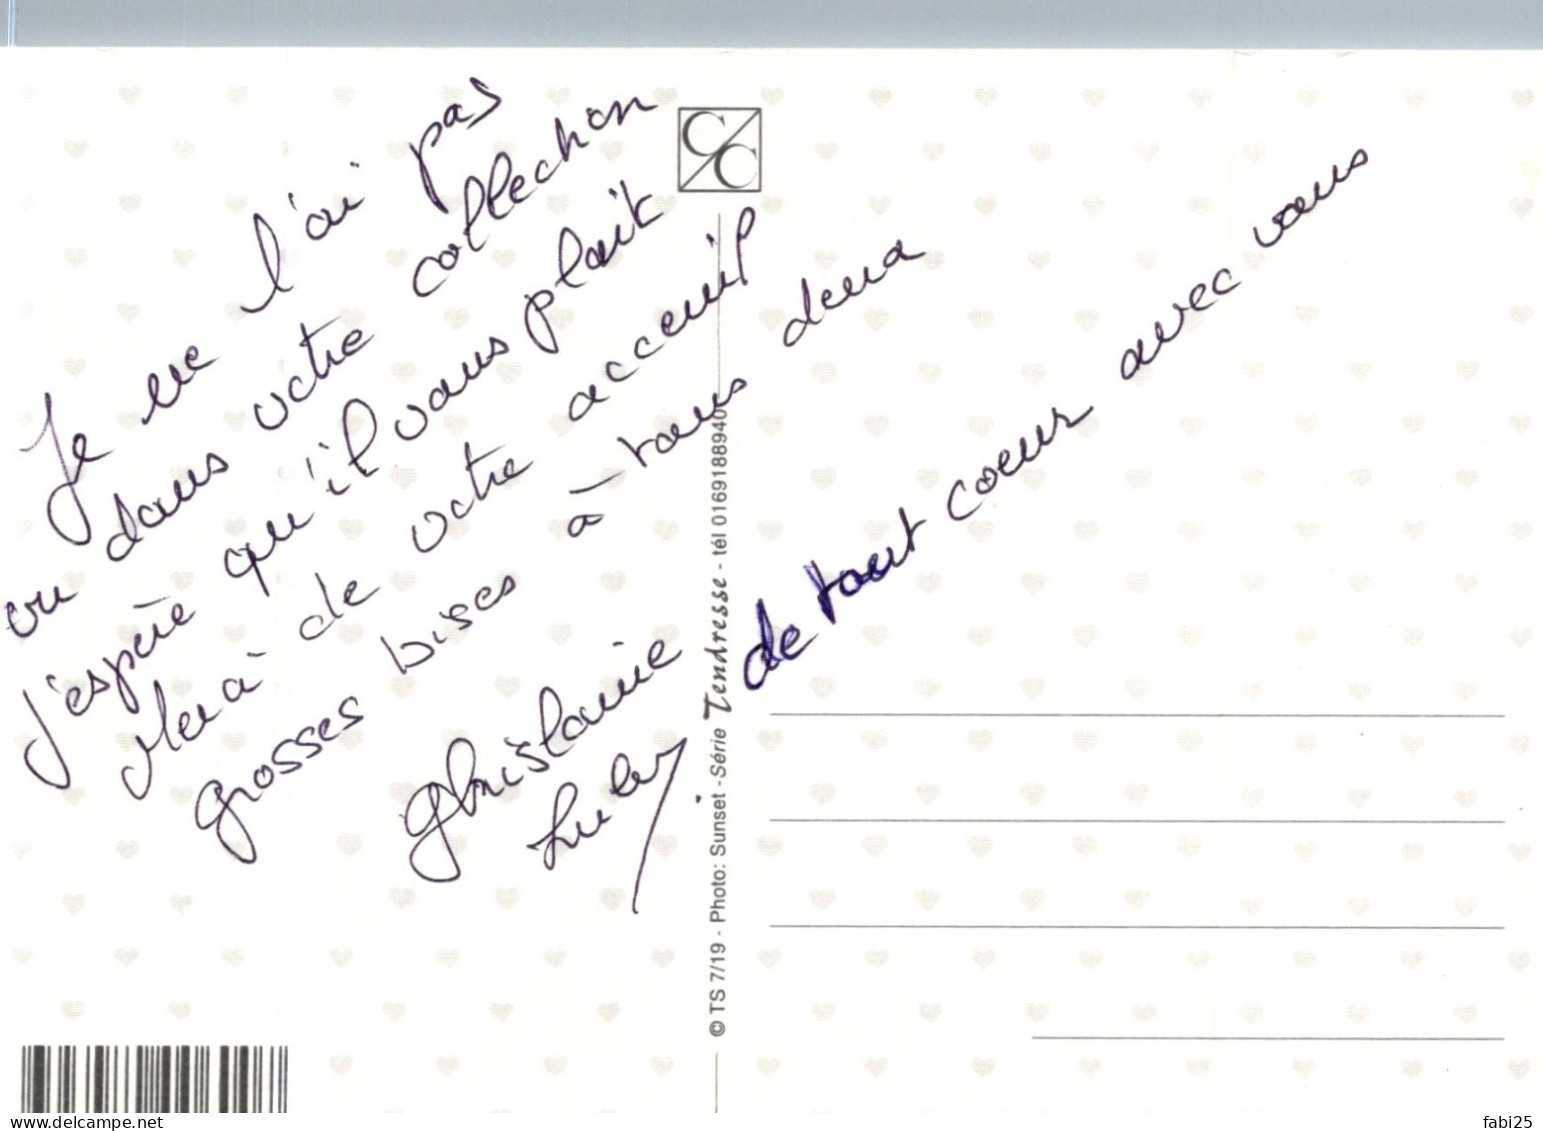 Je ne l'ai pas
vu dans votre collection
j'espère qu'il vous plait
Merci de votre acceuil
grosses bises à tous deux
de tout coeur avec vous
Ghislaine
CC
© TS 7/19 - Photo: Sunset - Série Tendresse - tél 0169188940
delcampe.net
fabi25